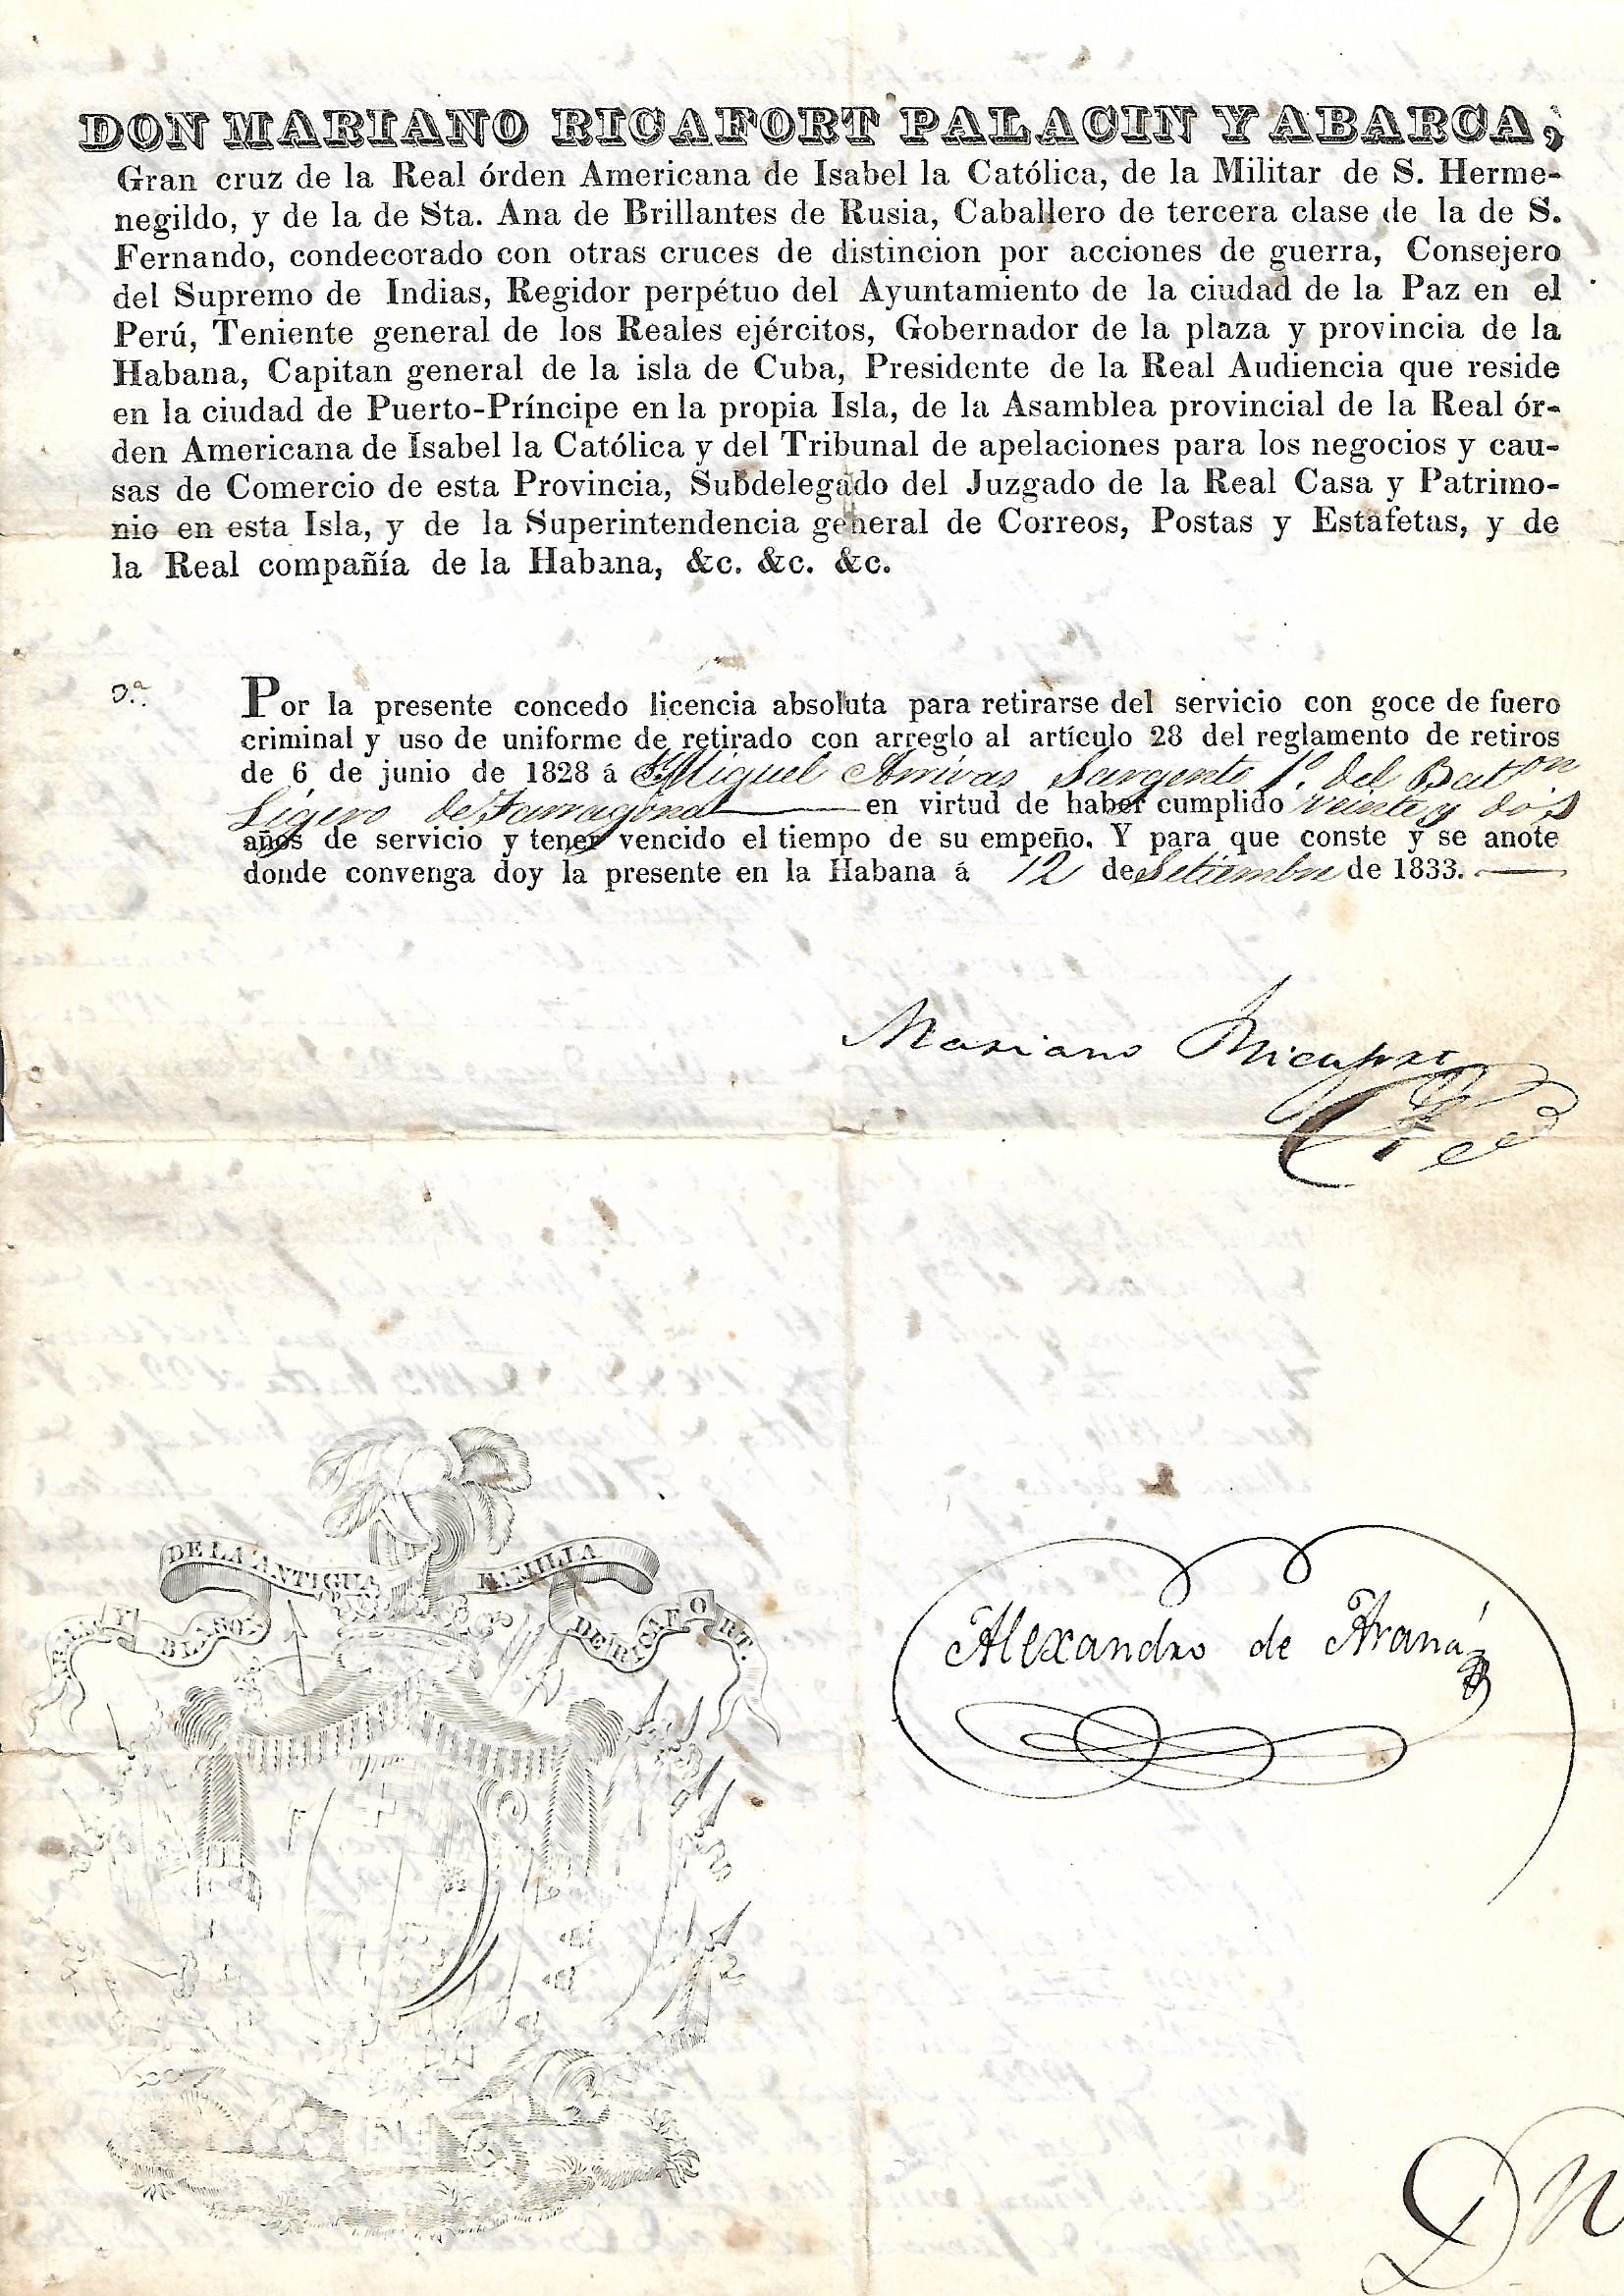 DON MARIANO RICAFORT PALACIN Y ABARCA,
Gran cruz de la Real órden Americana de Isabel la Católica, de la Militar de S. Herme-
negildo, y de la de Sta. Ana de Brillantes de Rusia, Caballero de tercera clase de la de S.
Fernando, condecorado con otras cruces de distincion por acciones de guerra, Consejero
del Supremo de Indias, Regidor perpétuo del Ayuntamiento de la ciudad de la Paz en el
Perú, Teniente general de los Reales ejércitos, Gobernador de la plaza y provincia de la
Habana, Capitan general de la isla de Cuba, Presidente de la Real Audiencia que reside
en la ciudad de Puerto-Príncipe en la propia Isla, de la Asamblea provincial de la Real ór-
den Americana de Isabel la Católica y del Tribunal de apelaciones para los negocios y cau-
sas de Comercio de esta Provincia, Subdelegado del Juzgado de la Real Casa y Patrimo-
nio en esta Isla, y de la Superintendencia general de Correos, Postas y Estafetas, y de
la Real compañía de la Habana, &c. &c. &c.
Por la presente concedo licencia absoluta para retirarse del servicio con goce de fuero
criminal y uso de uniforme de retirado con arreglo al artículo 28 del reglamento de retiros
de 6 de junio de 1828 á Miguel Arrivas Sargento 1º. del Baton
Ligero de Tarragona en virtud de haber cumplido veinte y dos
años de servicio y tener vencido el tiempo de su empeño. Y para que conste y se anote
donde convenga doy la presente en la Habana á 12 de Setiembre de 1833.
Mariano Ricafort
DE LA ANTIGUA FAMILIA
ARMAS Y BLASON DE RICAFORT.
Alexandro de Arana
Dn